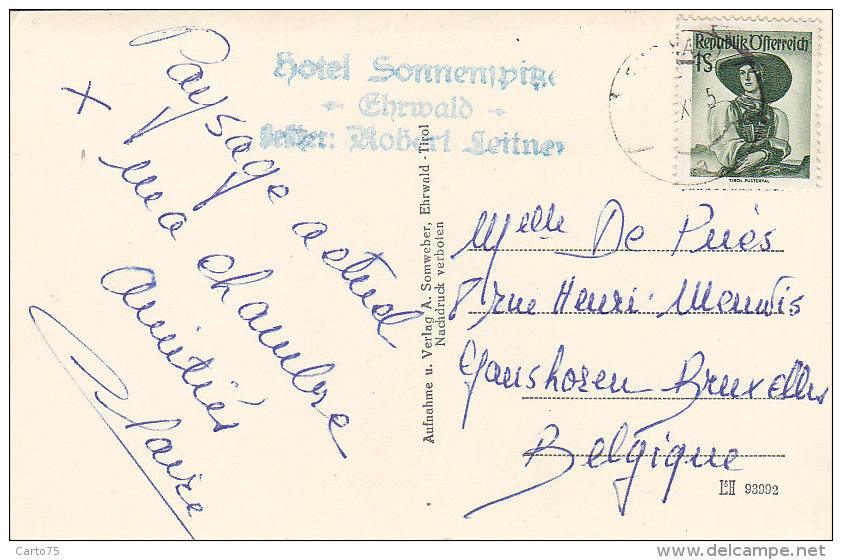 Paysage actuel
x ma chambre
Amitiés
Claire
Hotel Sonnenspitze
- Ehrwald -
Besitzer: Robert Leitner
Republik Österreich
1S
TIROL PUSTERTAL
Aufnahme u. Verlag A. Somweber, Ehrwald - Tirol
Nachdruck verboten
Melle De Puès
8 rue Henri
Ganshoren Bruxelles
Belgique
L&H 93992
Carto75
www.delcampe.net